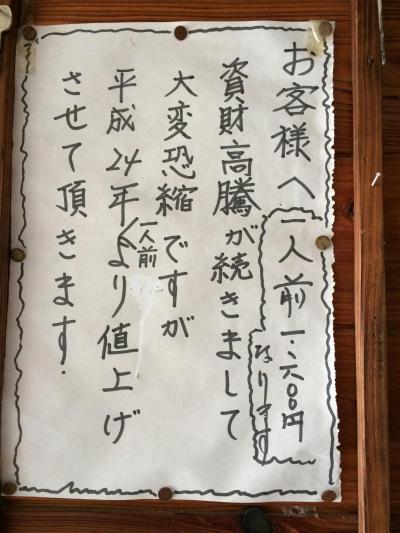 お客様へ
一人前一、六〇〇円
なります
資財高騰が続きまして
大変恐縮ですが
平成24年より値上げ
一人前
させて頂きます.